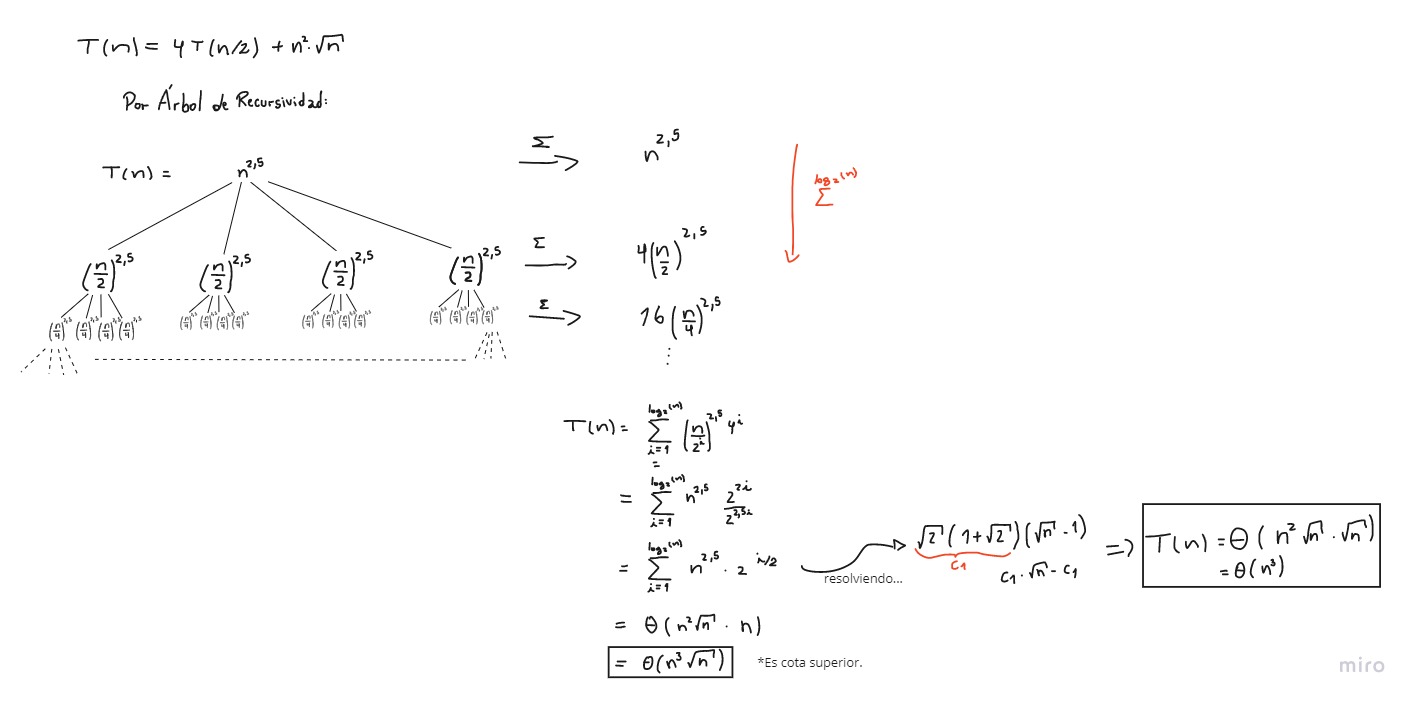 T(n) = 4T(n/2) + n²·√n
Por Árbol de Recursividad:
T(n) = n^2,5
Σ → n^2,5
(n/2)^2,5 (n/2)^2,5 (n/2)^2,5 (n/2)^2,5
Σ → 4(n/2)^2,5
(n/4)^2,5 (n/4)^2,5 (n/4)^2,5 (n/4)^2,5 (n/4)^2,5 (n/4)^2,5 (n/4)^2,5 (n/4)^2,5 (n/4)^2,5 (n/4)^2,5 (n/4)^2,5 (n/4)^2,5 (n/4)^2,5 (n/4)^2,5 (n/4)^2,5 (n/4)^2,5
Σ → 16(n/4)^2,5
⋮
log₂(n)
Σ
T(n) = Σ_{i=1}^{log₂(n)} (n/2^i)^2,5 4^i
=
= Σ_{i=1}^{log₂(n)} n^2,5 2^{2i}/2^{2,5i}
= Σ_{i=1}^{log₂(n)} n^2,5 · 2^{i/2}
resolviendo...
√2(1+√2)(√n - 1)
C₁
C₁·√n - C₁
=> T(n) = Θ(n²√n·√n)
= Θ(n³)
= Θ(n²√n · n)
= Θ(n³√n)
*Es cota superior.
miro